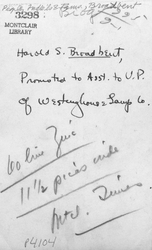 3298
MONTCLAIR
LIBRARY
Harold S. Broadbent,
Promoted to Asst. to V.P.
of Westinghouse Lamp Co.
60 line Zinc
11 1/2 picas wide
Mtc. Times
P4104